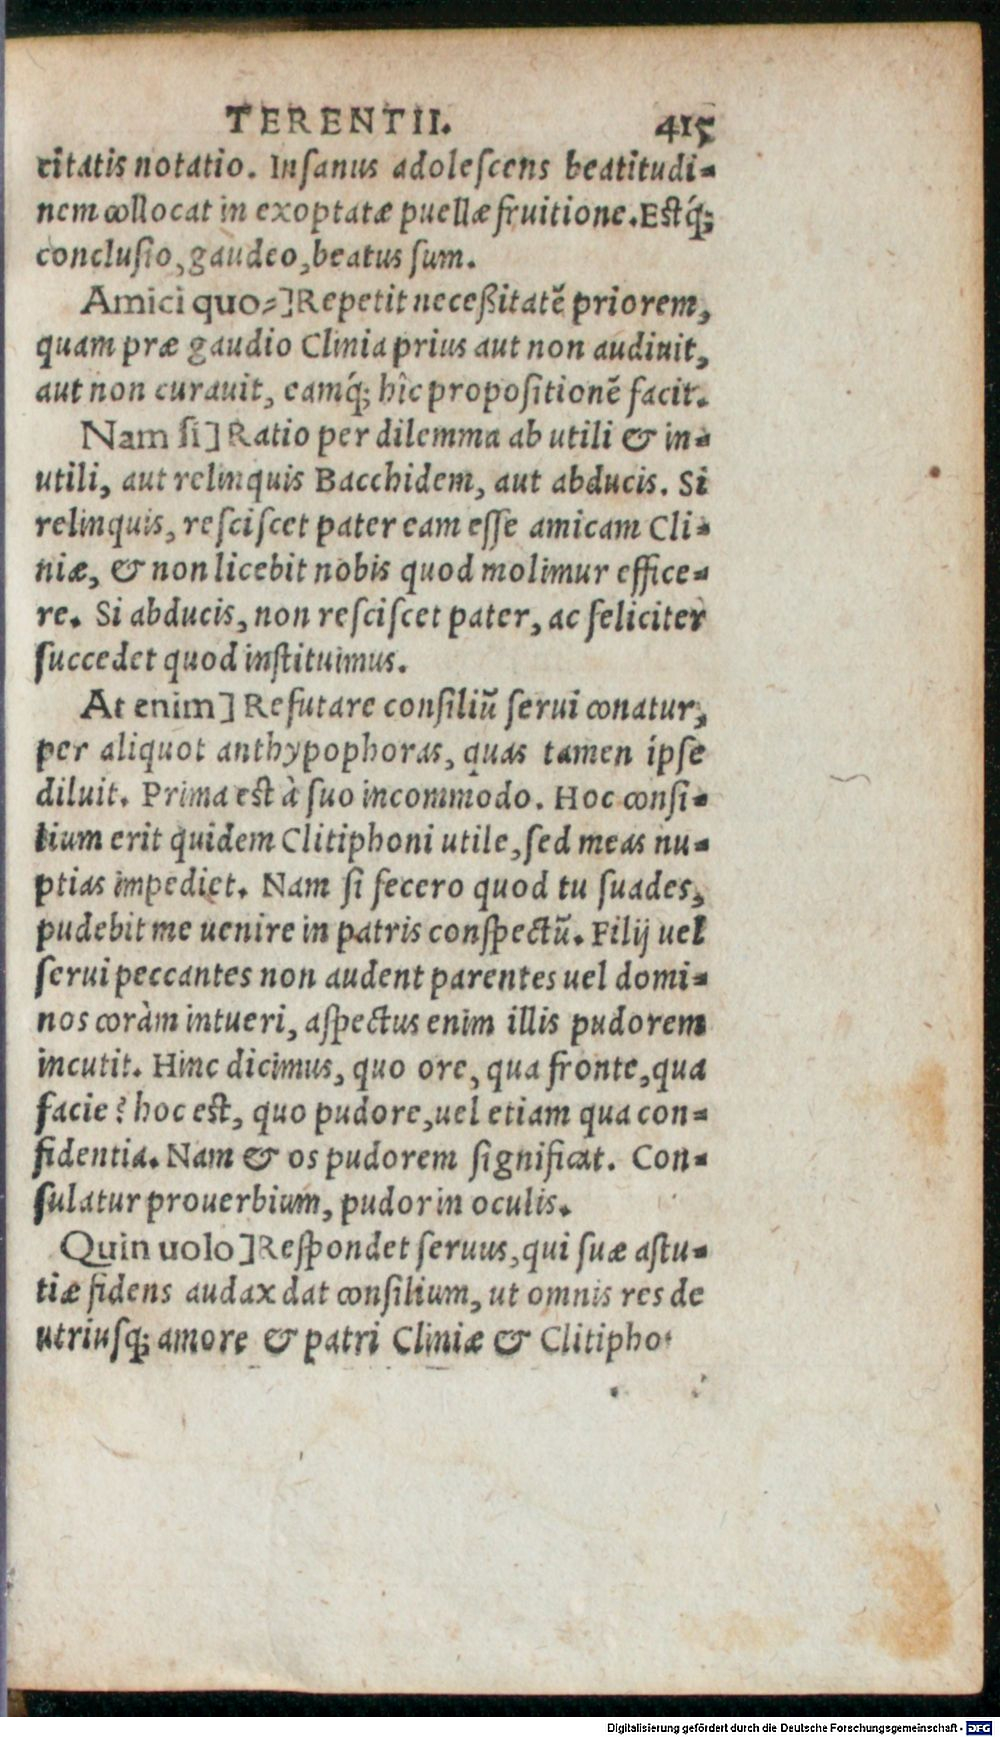 TERENTII. 415
citatis notatio. Inſanus adoleſcens beatitudi-
nem collocat in exoptatæ puellæ fruitione. Eſtq́;
concluſio, gaudeo, beatus ſum.
Amici quo-] Repetit neceßitatē priorem,
quam præ gaudio Clinia prius aut non audiuit,
aut non curauit, eamq́; hîc propoſitionē facit.
Nam ſi] Ratio per dilemma ab utili & in-
utili, aut relinquis Bacchidem, aut abducis. Si
relinquis, reſciſcet pater eam eſſe amicam Cli-
niæ, & non licebit nobis quod molimur effice-
re. Si abducis, non reſciſcet pater, ac feliciter
ſuccedet quod inſtituimus.
At enim] Refutare conſiliū ſerui conatur,
per aliquot anthypophoras, quas tamen ipſe
diluit. Prima eſt à ſuo incommodo. Hoc conſi-
lium erit quidem Clitiphoni utile, ſed meas nu-
ptias impediet. Nam ſi fecero quod tu ſuades,
pudebit me uenire in patris conſpectū. Filij uel
ſerui peccantes non audent parentes uel domi-
nos coràm intueri, aſpectus enim illis pudorem
incutit. Hinc dicimus, quo ore, qua fronte, qua
facie? hoc eſt, quo pudore, uel etiam qua con-
fidentia. Nam & os pudorem ſignificat. Con-
ſulatur prouerbium, pudor in oculis.
Quin uolo] Reſpondet ſeruus, qui ſuæ aſtu-
tiæ fidens audax dat conſilium, ut omnis res de
utriuſq; amore & patri Cliniæ & Clitipho-
Digitalisierung gefördert durch die Deutsche Forschungsgemeinschaft - DFG